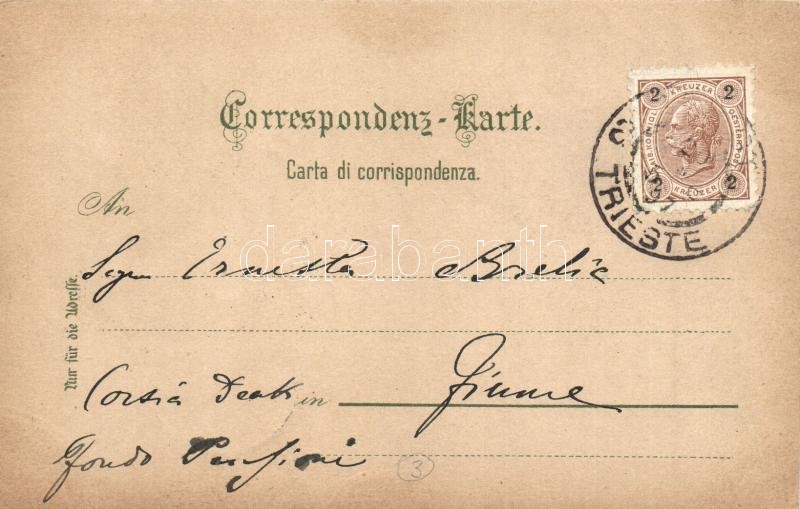 Correspondenz-Karte.
Carta di corrispondenza.
2 KREUZER 2
2 KREUZER 2
TRIESTE
An
Nur für die Adresse.
Ernesta
Corsia Deak in Fiume
Fondo Pensioni
3
darabanth.com